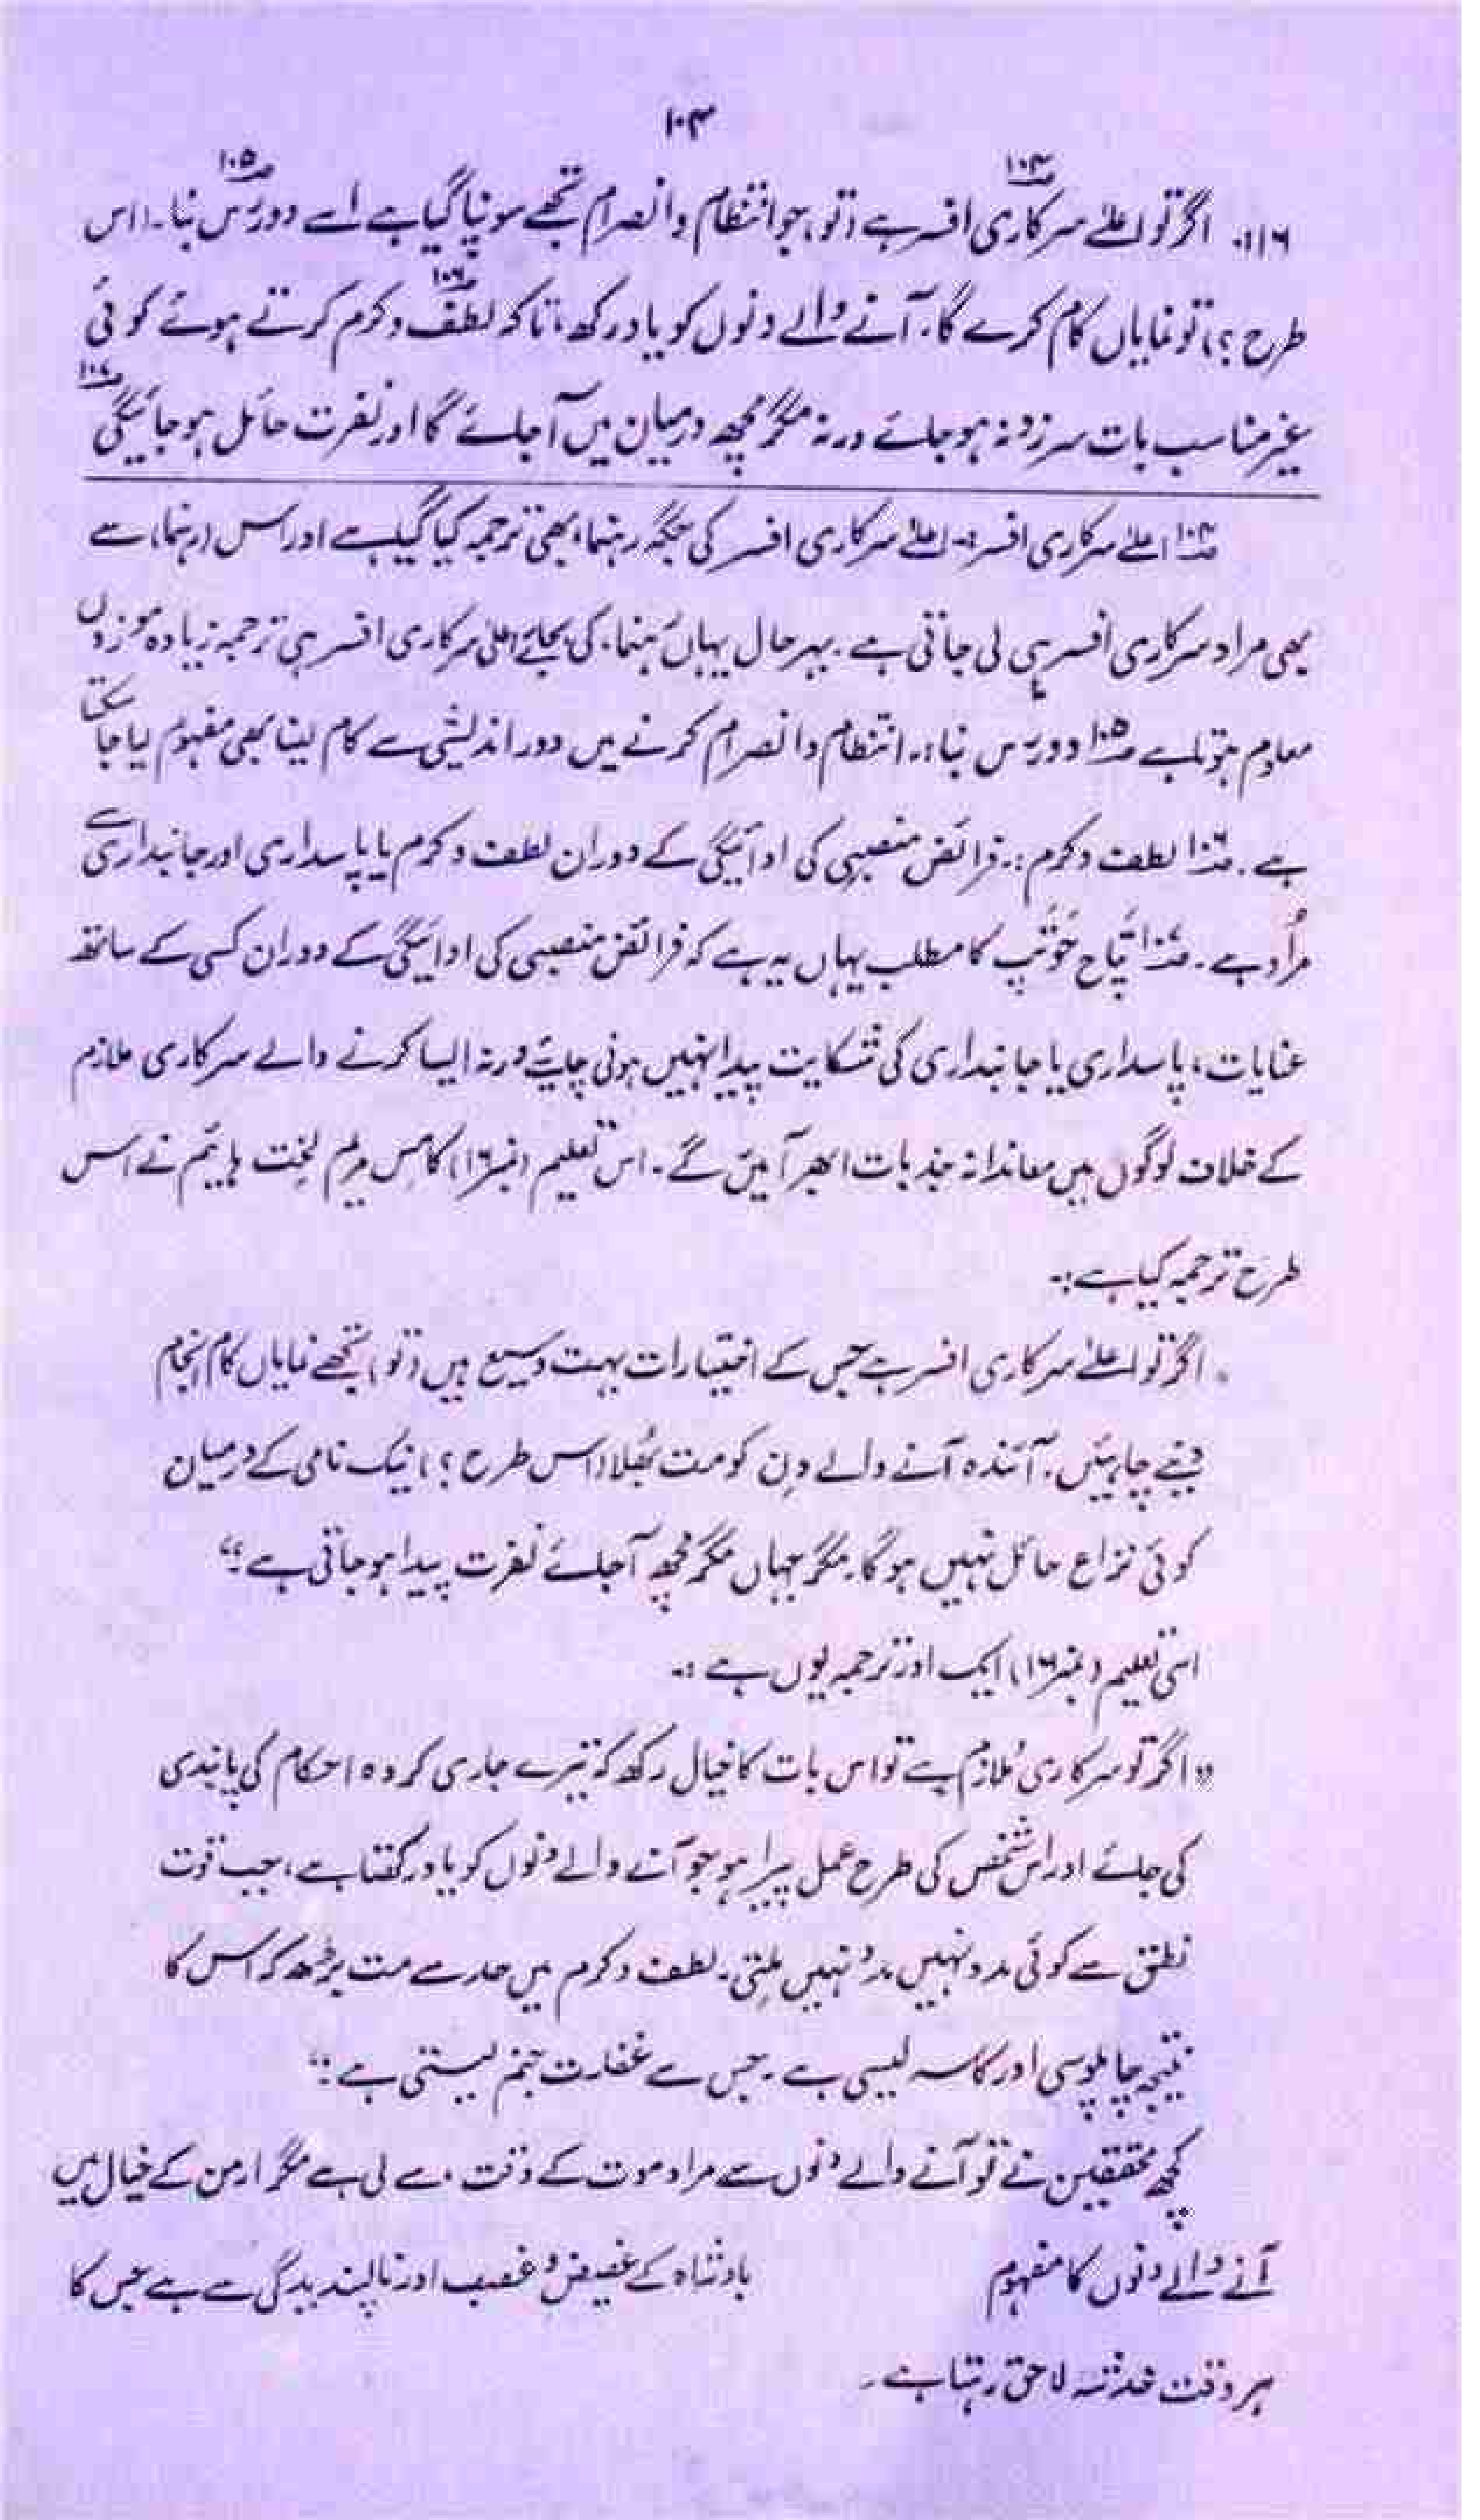 ۱۰۳
۱۶۔ اگر تو اعلیٰ سرکاری افسر ہے (تو) جو انتظام و انصرام تجھے سونپا گیا ہے اسے دور رس بنا۔ (اس
طرح؟) تو نمایاں کام کرے گا۔ آنے والے دنوں کو یاد رکھ، تاکہ لطف و کرم کرتے ہوئے کوئی
غیر مناسب بات سرزد نہ ہو جائے ورنہ مگرمچھ درمیان میں آ جائے گا اور نفرت حائل ہو جائیگی
۱۰۴ اعلیٰ سرکاری افسر:۔ اعلیٰ سرکاری افسر کی جگہ رہنما، بھی ترجمہ کیا گیا ہے اور اس (رہنما) سے
بھی مراد سرکاری افسر ہی لی جاتی ہے۔ بہرحال یہاں رہنما، کی بجائے اعلیٰ سرکاری افسر ہی ترجمہ زیادہ موزوں
معلوم ہوتا ہے ۱۰۵ دور رس بنا:۔ انتظام و انصرام کرنے میں دور اندیشی سے کام لینا بھی مفہوم لیا جا سکتا
ہے۔ ۱۰۶ لطف و کرم:۔ فرائض منصبی کی ادائیگی کے دوران لطف و کرم یا پاسداری اور جانبداری سے
مراد ہے۔ ۱۰۷ پتاح حوتپ کا مطلب یہاں یہ ہے کہ فرائض منصبی کی ادائیگی کے دوران کسی کے ساتھ
عنایات، پاسداری یا جانبداری کی شکایت پیدا نہیں ہونی چاہیئے ورنہ ایسا کرنے والے سرکاری ملازم
کے خلاف لوگوں میں معاندانہ جذبات ابھر آئیں گے۔ اس تعلیم (نمبر ۱۶) کا مس مریم لخت ہائیم نے اس
طرح ترجمہ کیا ہے:۔
"اگر تو اعلیٰ سرکاری افسر ہے جس کے اختیارات بہت وسیع ہیں (تو) تجھے نمایاں کام انجام
دینے چاہئیں۔ آئندہ آنے والے دن کو مت بھلا (اس طرح؟) نیک نامی کے درمیان
کوئی نزاع حائل نہیں ہوگا۔ مگر جہاں مگرمچھ آ جائے نفرت پیدا ہو جاتی ہے۔"
اسی تعلیم (نمبر ۱۶) ایک اور ترجمہ یوں ہے:۔
"اگر تو سرکاری ملازم ہے تو اس بات کا خیال رکھ کہ تیرے جاری کردہ احکام کی پابندی
کی جائے اور اس شخص کی طرح عمل پیرا ہو جو آنے والے دنوں کو یاد رکھتا ہے، جب قوت
نطق سے کوئی مدد نہیں مدد نہیں ملتی۔ لطف و کرم میں حد سے مت بڑھ کہ اس کا
نتیجہ چاپلوسی اور کاسہ لیسی ہے۔ جس سے حقارت جنم لیتی ہے۔"
کچھ محققین نے تو آنے والے دنوں سے مراد موت کے وقت سے لی ہے مگر ارمن کے خیال میں
آنے والے دنوں کا مفہوم بادشاہ کے غیض و غضب اور ناپسندیدگی سے ہے جس کا
ہر وقت خدشہ لاحق رہتا ہے۔